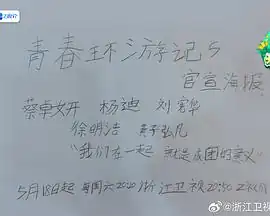 青春环游记5
官宣海报
蔡卓妍 杨迪 刘宪华
徐明浩 黄子弘凡
"我们在一起 就是成团的意义"
5月18日起 每周六2020浙江卫视20:50
@浙江卫视